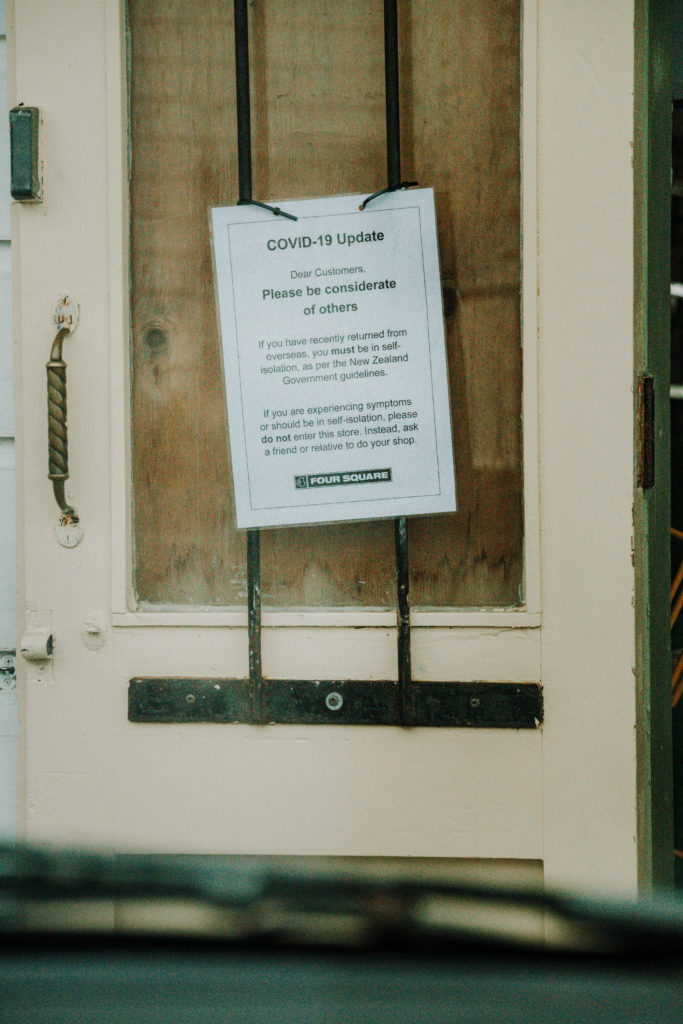 COVID-19 Update
Dear Customers,
Please be considerate
of others
If you have recently returned from
overseas, you must be in self-
isolation, as per the New Zealand
Government guidelines.
If you are experiencing symptoms
or should be in self-isolation, please
do not enter this store. Instead, ask
a friend or relative to do your shop.
4 FOUR SQUARE